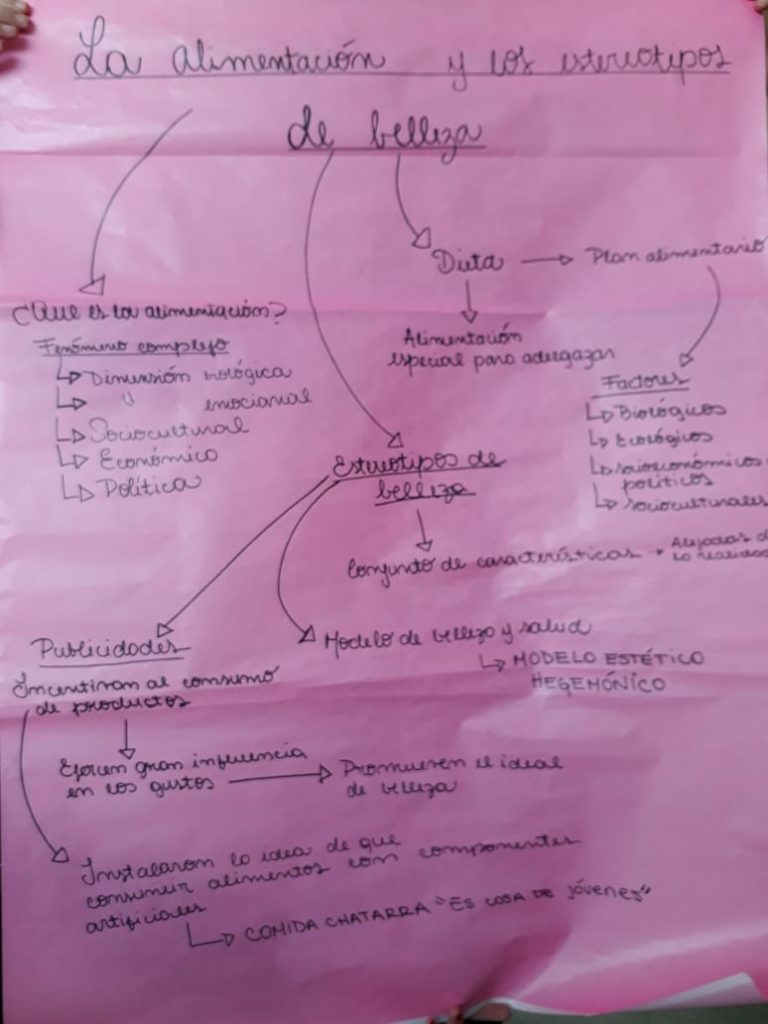 La alimentación y los estereotipos
de belleza
¿Que es la alimentación?
Fenómeno complejo
Dimensión biológica
" emocional
Sociocultural
Económico
Política
Dieta
Plan alimentario
Alimentación
especial para adelgazar
Factores
Biológicos
Ecológicos
socioeconómicos
políticos
socioculturales
Estereotipos de
belleza
Conjunto de características
Alejadas d
lo realidad
Modelo de belleza y salud
MODELO ESTÉTICO
HEGEMÓNICO
Publicidades
Incentivan al consumo
de productos
Ejercen gran influencia
en los gustos
Promueven el ideal
de belleza
Instalaron la idea de que
consumir alimentos con componentes
artificiales
COMIDA CHATARRA "ES COSA DE jóvenes"